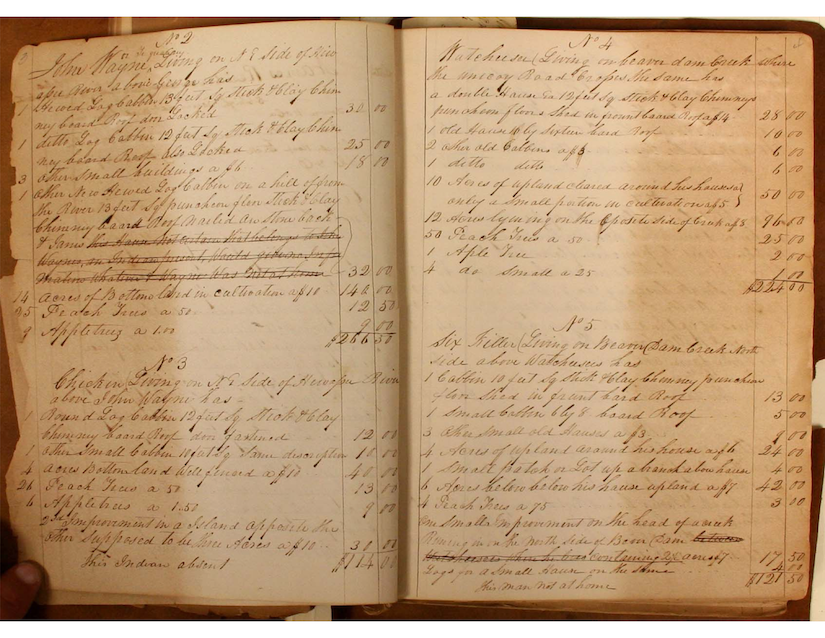 No 2
John Wayne, Living on N E Side of Hiwa
ssee River above George has
1 Hewed Log Cabbin 13 feet Sq Stick & Clay Chim
ney board Roof don Locked 30 00
1 ditto Log Cabbin 12 feet Sq Stick & Clay Chim
ney board Roof also Locked 25 00
3 other Small buildings a $6 18 00
1 other New Hewed Log Cabbin on a hill of from
the River 13 feet Sq puncheon floor Stick & Clay
Chimney board Roof Nailed on Stone back
& Jams 32 00
14 acres of Bottom land in cultivation a $10 140 00
25 Peach Trees a 50 12 50
9 Appletrees a 1.00 9 00
$266 50
No 3
Chicken Living on N E Side of Hiwassee River
above John Wayne has
1 Round Log Cabbin 12 feet Sq Stick & Clay
Chimney board Roof don fastened 12 00
1 other Small Cabbin 10 feet Sq Same description 10 00
4 acres Bottom land Well fenced a $10 40 00
26 Peach Trees a 50 13 00
6 Appletrees a 1.50 9 00
2nd Improvement in a Island opposite this
other Supposed to be three Acres a $10 30 00
This Indian absent $114 00
No 4
Watcheesee (Living on beaver dam Creek where
the Road Crosses the Same has
a double House 12 feet Sq Stick & Clay Chimneys
puncheon floors Shed in front board Roof a $14 28 00
1 old House by Sixteen board Roof 10 00
2 other old Cabbins a $3 6 00
1 ditto ditto 6 00
10 Acres of upland cleared around his houses a
only a Small portion in cultivation a $5 50 00
12 Acres Lying on the Oposite Side of Creek a $8 96 00
50 Peach Trees a 50 25 00
1 Aple Tree 2 00
4 do Small a 25 1 00
$224 00
No 5
Six Killer (Living on Beaver Dam Creek North
side above Watcheesees has
1 Cabbin 10 feet Sq Stick & Clay Chimney puncheon
floor Shed in front board Roof 13 00
1 Small Cabbin 6 by 8 board Roof 5 00
3 other Small old Houses a $3 9 00
4 Acres of upland around his house a $6 24 00
1 Small patch or Lot up a branch above house 4 00
6 Acres below his house upland a $7 42 00
4 Peach Trees a 75 3 00
one Small Improvement on the head of a creek
Runing in on the north Side of Bever Dam
containing 2½ acres $7 17 50
Logs for a Small House on the Same 4 00
This man not at home $121 50